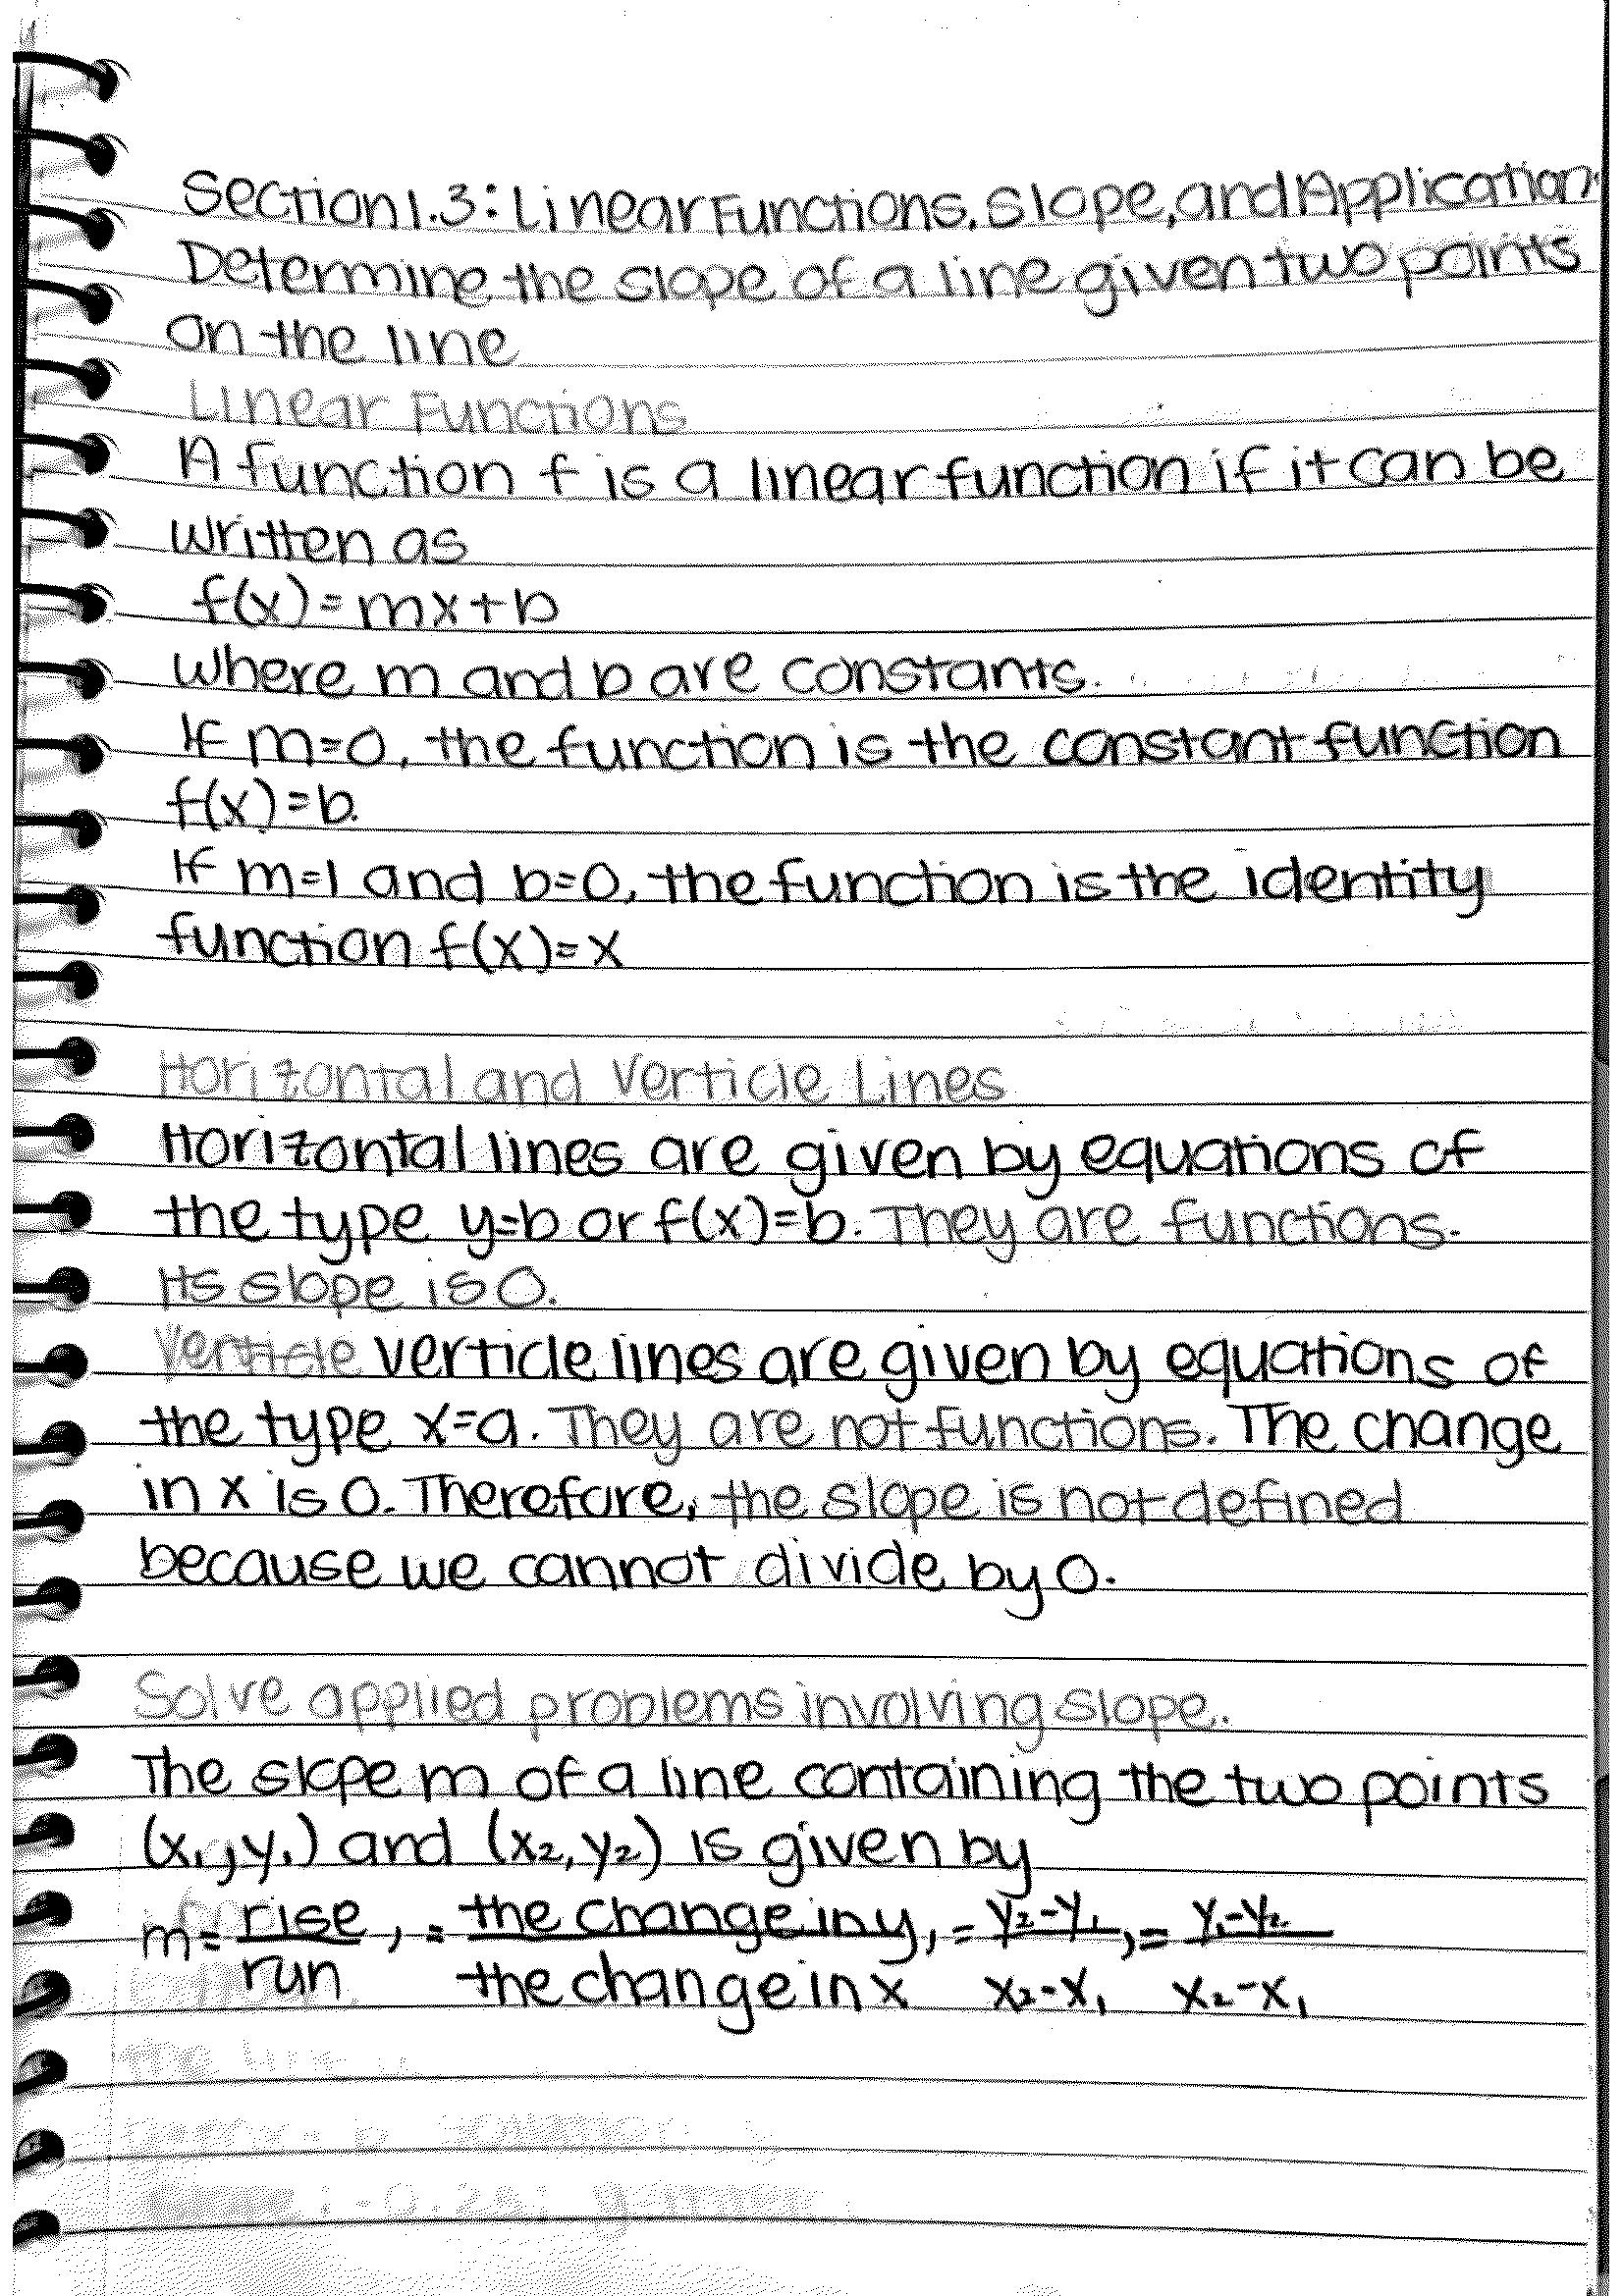 Section 1.3: Linear Functions, Slope, and Application
Determine the slope of a line given two points
on the line
Linear Functions
A function f is a linear function if it can be
written as
f(x)=mx+b
where m and b are constants.
If m=0, the function is the constant function
f(x)=b.
If m=1 and b=0, the function is the identity
function f(x)=x
Horizontal and Verticle Lines
Horizontal lines are given by equations of
the type y=b or f(x)=b. They are functions.
Its slope is 0.
Verticle verticle lines are given by equations of
the type x=a. They are not functions. The change
in x is 0. Therefore, the slope is not defined
because we cannot divide by 0.
Solve applied problems involving slope.
The slope m of a line containing the two points
(x₁,y₁) and (x₂,y₂) is given by
m= rise, = the change in y, = y₂-y₁, = y₁-y₂
run the change in x x₂-x₁ x₂-x₁